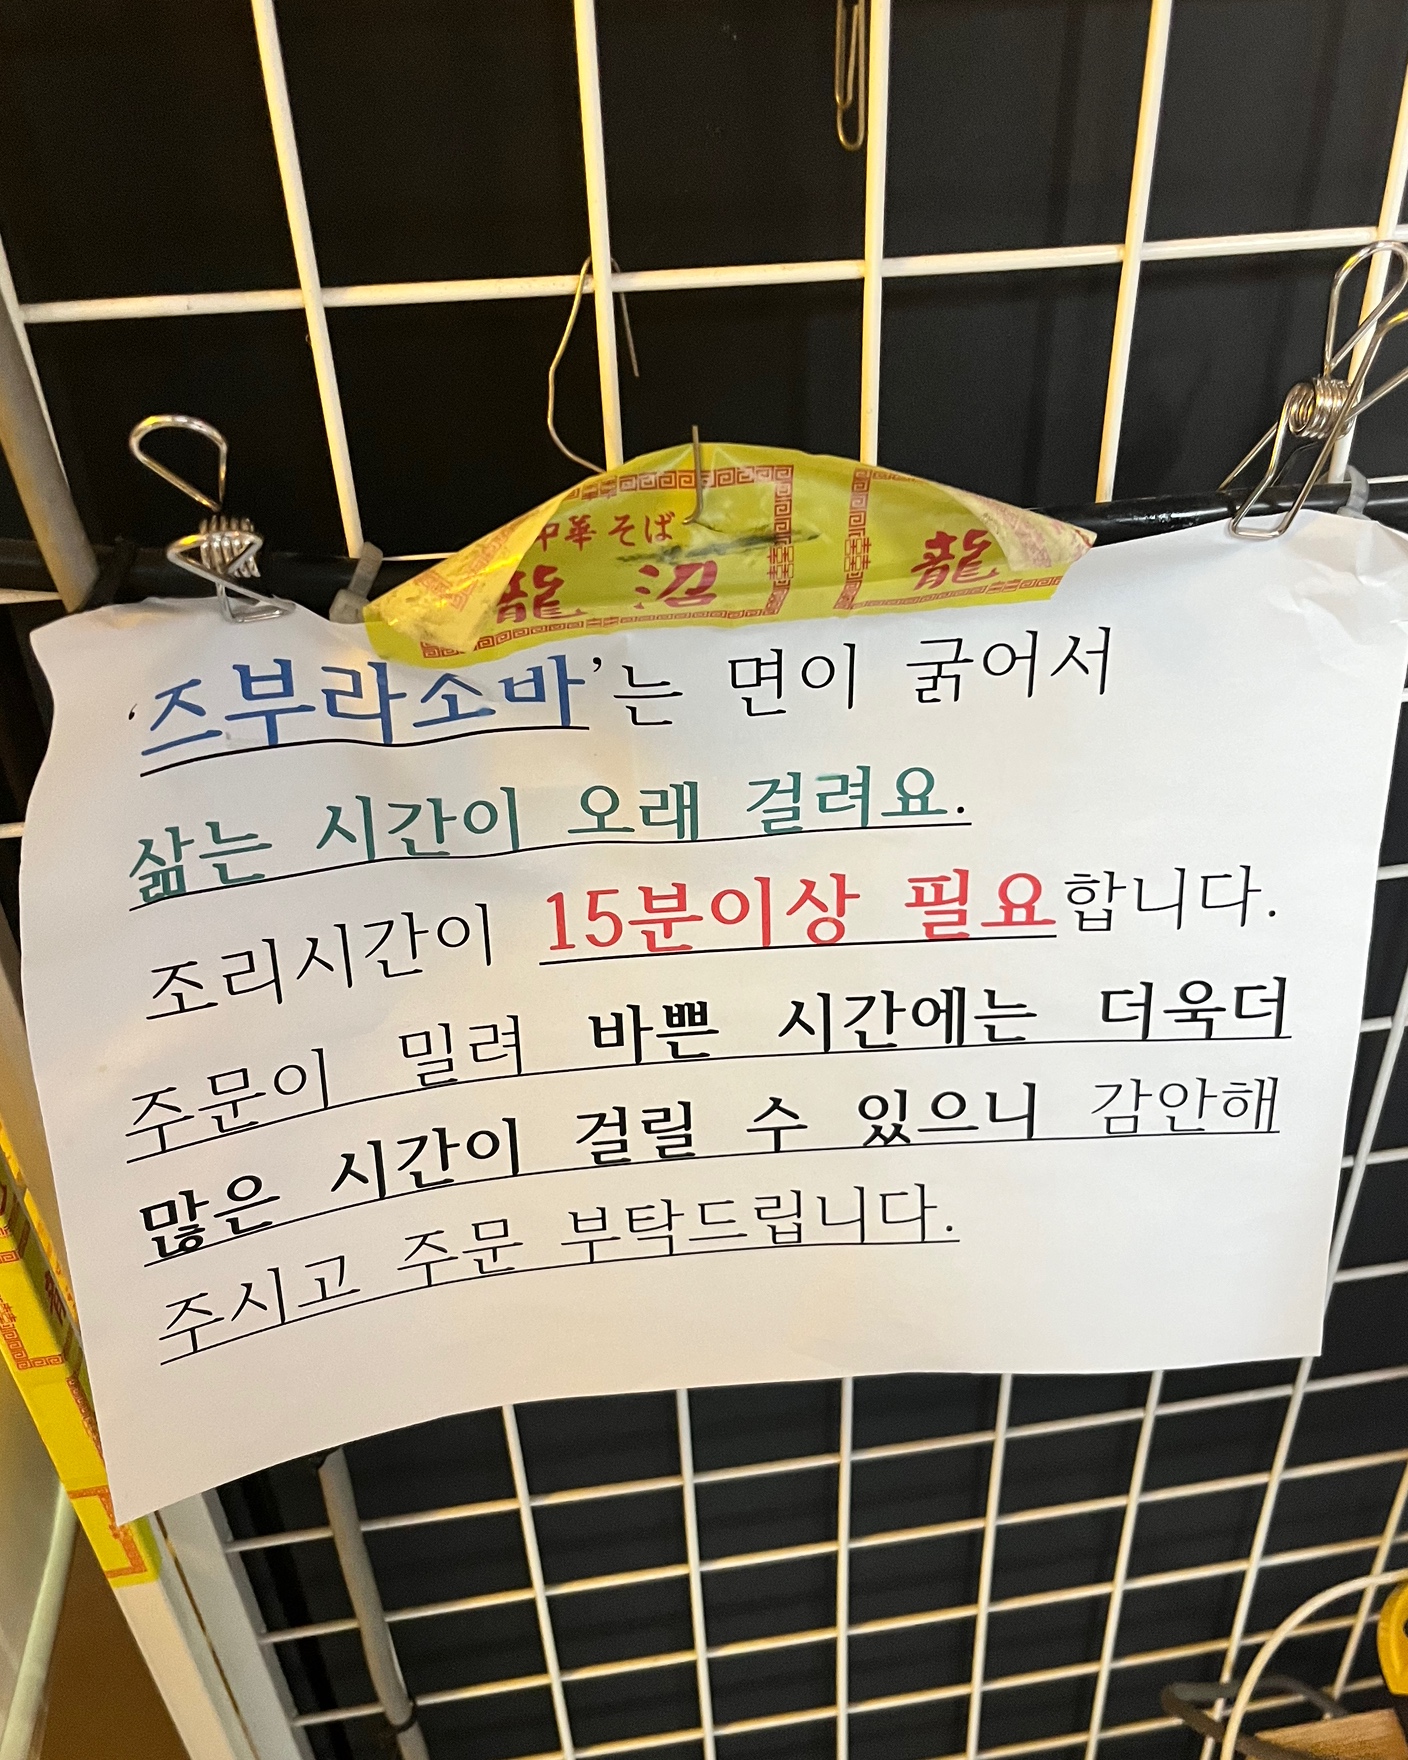 中華そば
龍沼
龍
‘즈부라소바’는 면이 굵어서
삶는 시간이 오래 걸려요.
조리시간이 15분이상 필요합니다.
주문이 밀려 바쁜 시간에는 더욱더
많은 시간이 걸릴 수 있으니 감안해
주시고 주문 부탁드립니다.